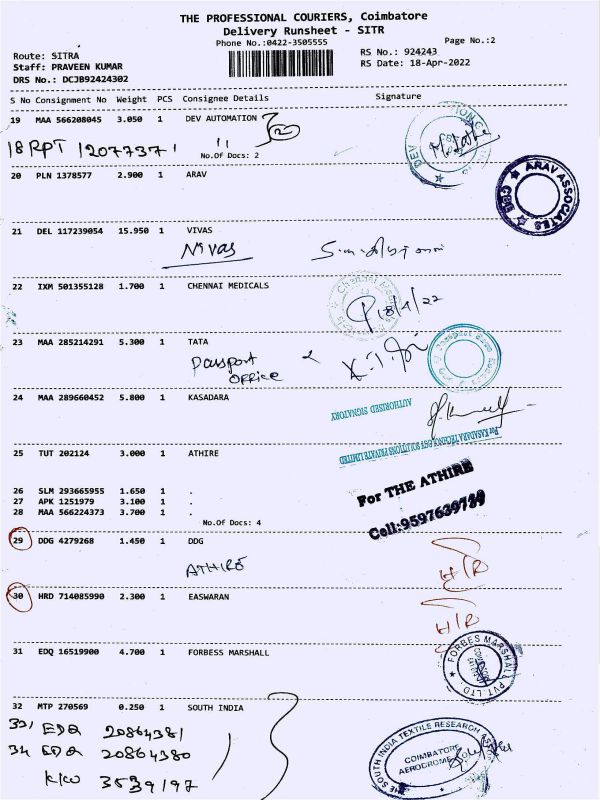 THE PROFESSIONAL COURIERS, Coimbatore
Delivery Runsheet - SITR
Phone No.:0422-3505555
Page No.:2
Route: SITRA
RS No.: 924243
Staff: PRAVEEN KUMAR
RS Date: 18-Apr-2022
DRS No.: DCJB92424302
S No Consignment No Weight PCS Consignee Details Signature
19 MAA 566208045 3.050 1 DEV AUTOMATION
18 RPT 1207737 1 "
No.Of Docs: 2
20 PLN 1378577 2.900 1 ARAV
ARAV ASSOCIATES
CBE
21 DEL 117239054 15.950 1 VIVAS
Nivas
22 IXM 501355128 1.700 1 CHENNAI MEDICALS
18/4/22
23 MAA 285214291 5.300 1 TATA
Passport
office
24 MAA 289660452 5.800 1 KASADARA
For KASADARA TECHNOLOGY SOLUTIONS PRIVATE LIMITED
AUTHORISED SIGNATORY
25 TUT 202124 3.000 1 ATHIRE
For THE ATHIRE
26 SLM 293665955 1.650 1 .
27 APK 1251979 3.100 1 .
28 MAA 566224373 3.700 1 .
No.Of Docs: 4
29 DDG 4279268 1.450 1 DDG
ATHIRE
H/R
30 HRD 714085990 2.300 1 EASWARAN
H/R
31 EDQ 16519900 4.700 1 FORBESS MARSHALL
FORBES MARSHALL PVT. LTD.
32 MTP 270569 0.250 1 SOUTH INDIA
33, EDQ 20864381
34 EDQ 20864380
KKW 3539197
THE SOUTH INDIA TEXTILE RESEARCH
COIMBATORE
AERODROME